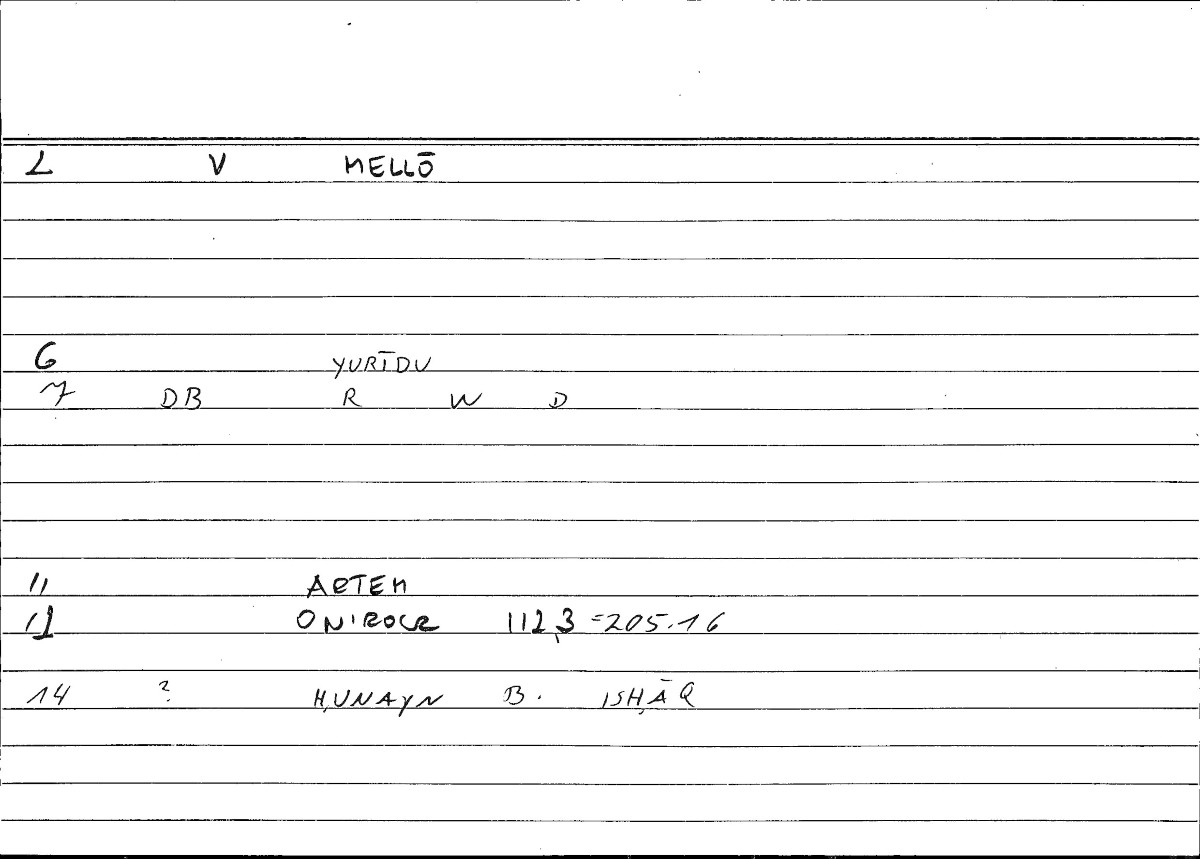 2 V MELLŌ
6 YURĪDU
7 DB R W D
11 ARTEM
12 ONIROCR 112,3 = 205.16
14 ? ḤUNAYN B. ISḤĀQ